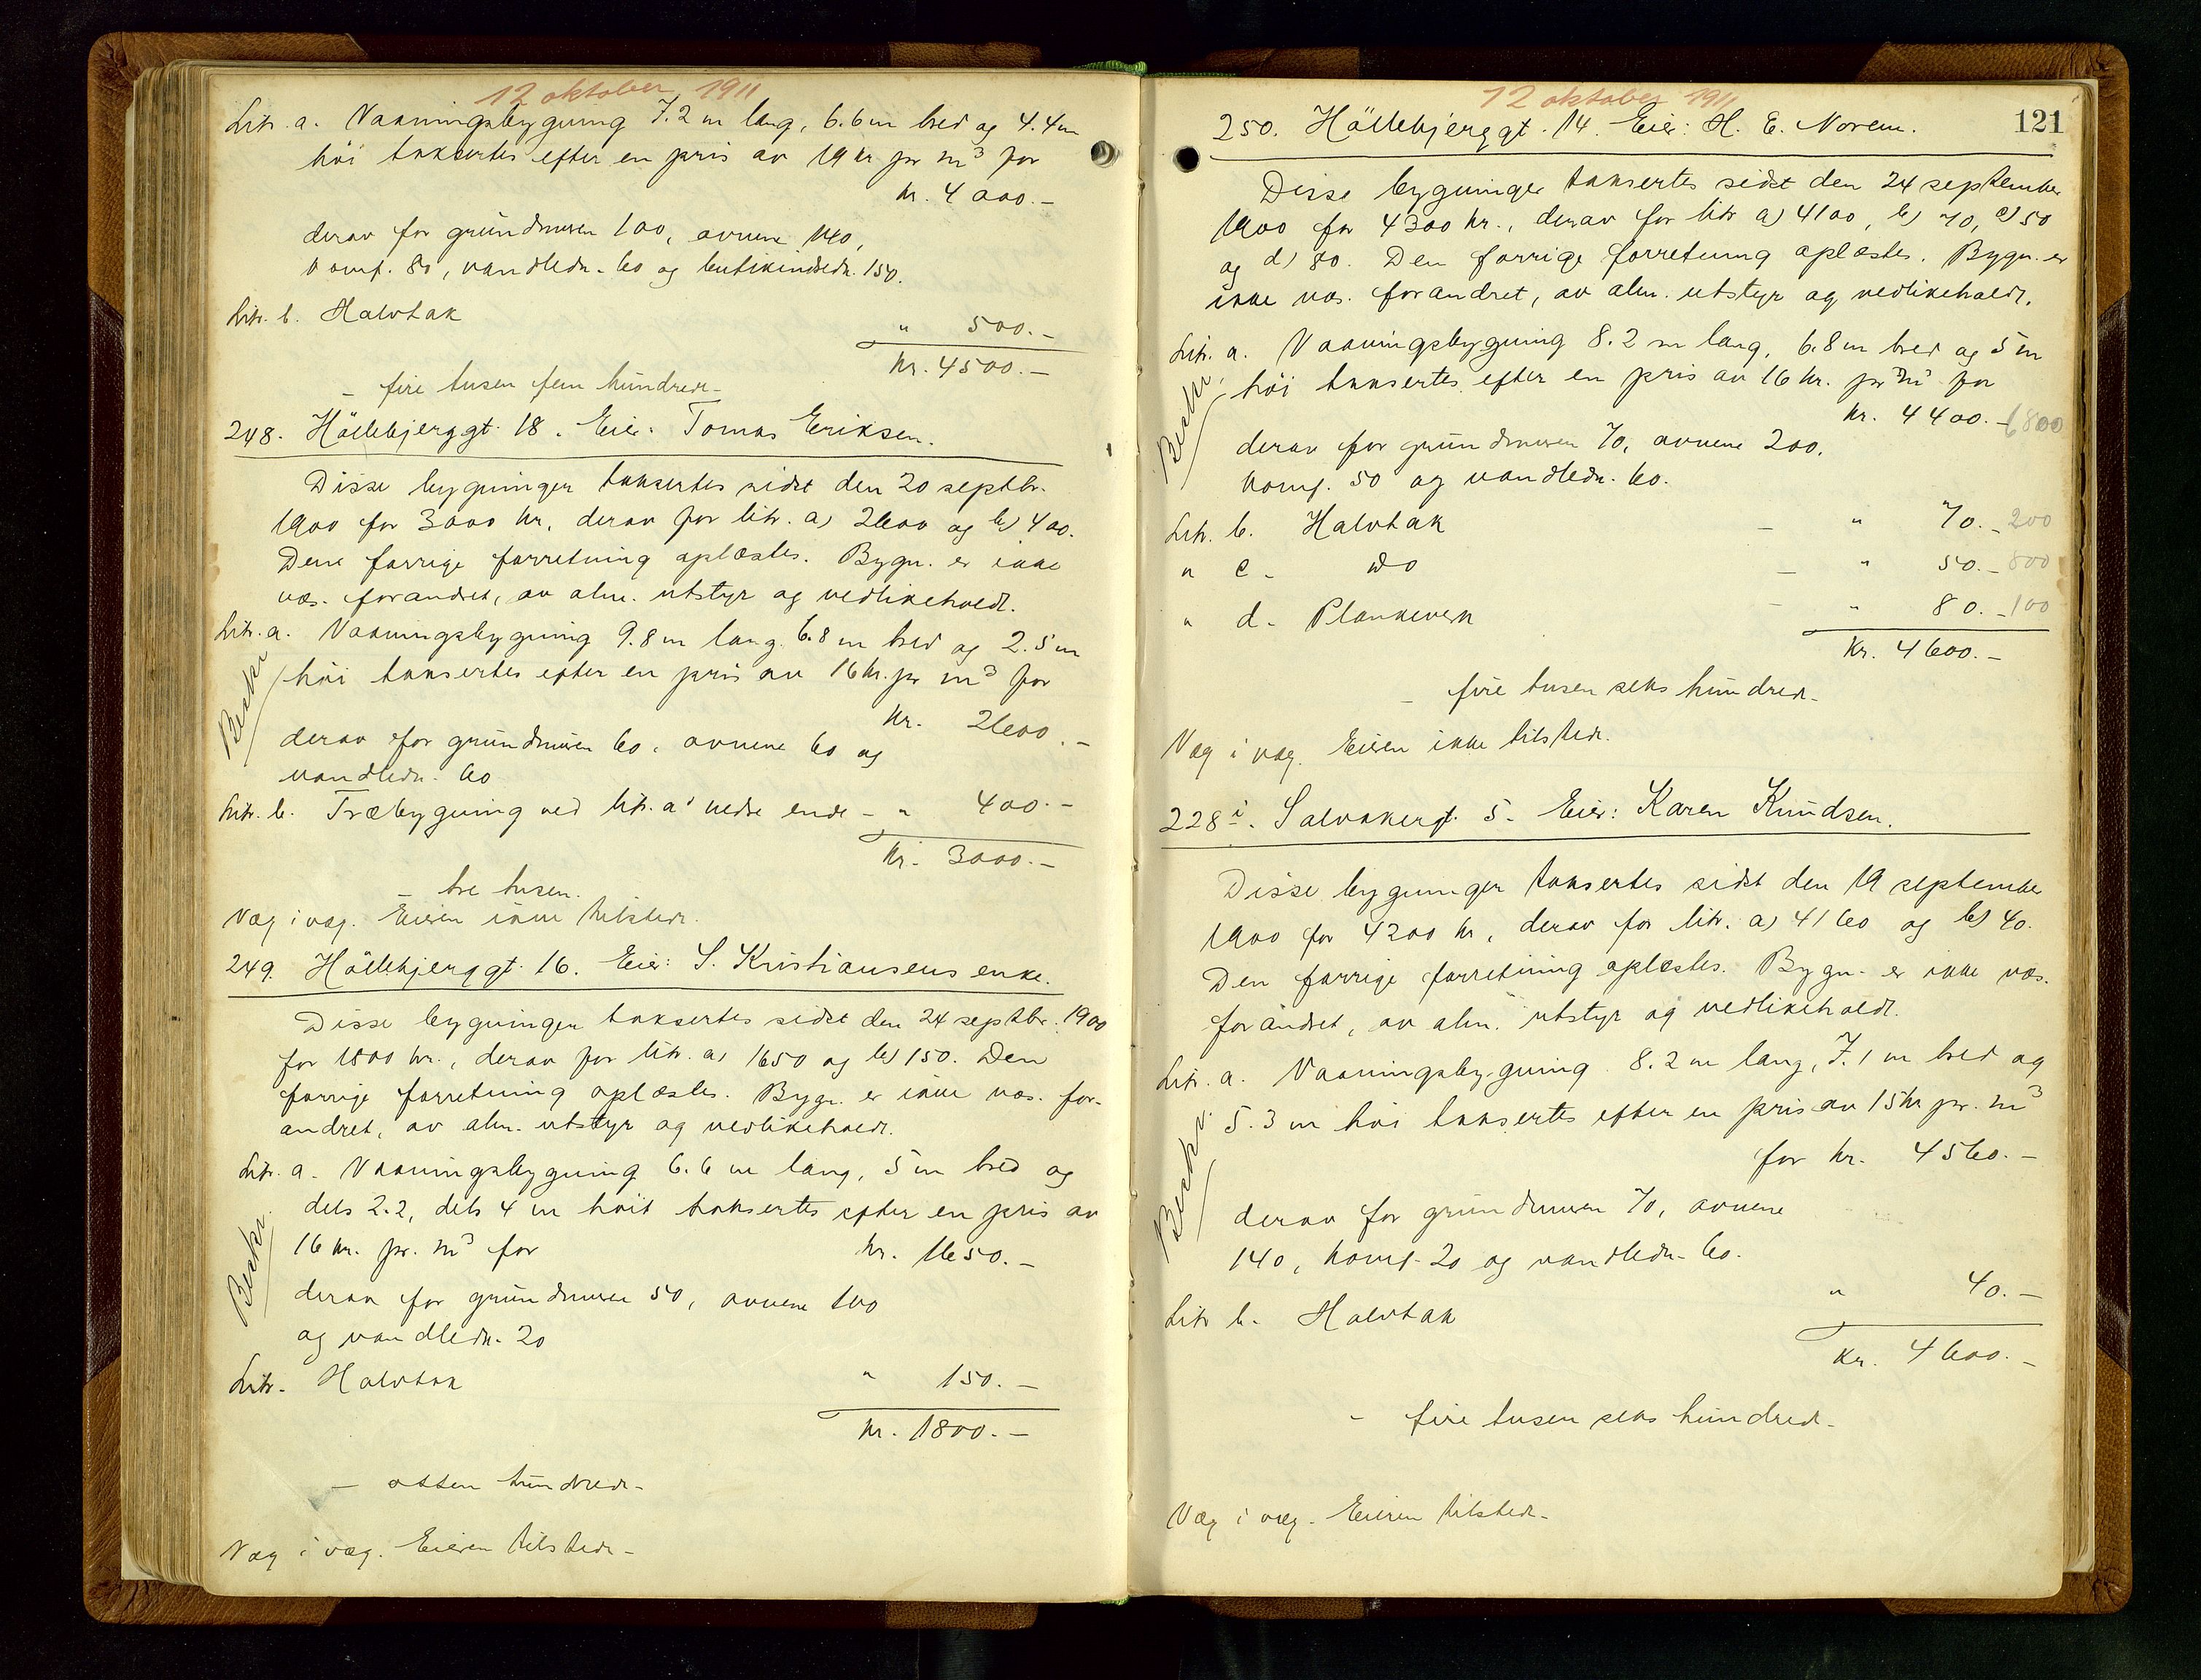 12 oktober 1911
Litr. a. Vaaningsbygning 7.2 m lang, 6.6 m bred og 4.4 m
höi taksertes efter en pris av 19 kr pr m³ for
kr. 4000.-
derav for grundmuren 100, ovnene 140,
komf. 80, vandledn. 60 og butikindredn. 150.
Litr. b. Halvtak
" 500.-
kr. 4500.-
- fire tusen fem hundrede -
248. Höllebjerggt. 18. Eier: Tomas Eriksen.
Disse bygninger taksertes sidst den 20 septbr.
1900 for 3000 kr, derav for litr. a) 2600 og b) 400.
Den forrige forretning oplæstes. Bygn. er ikke
væs. forandret, av alm. utstyr og vedlikeholdt.
Litr. a. Vaaningsbygning 9.8 m lang 6.8 m bred og 2.5 m
höi taksertes efter en pris av 16 kr. pr m³ for
Beskr.
kr. 2600.-
derav for grundmuren 60, ovnene 60 og
vandledn. 60
Litr. b. Træbygning ved litr. a' nedre ende - " 400.-
kr. 3000.-
- tre tusen.
Væg i væg. Eieren ikke tilstede.
249. Höllebjerggt. 16. Eier: S. Kristiansens enke.
Disse bygninger taksertes sidst den 24 septbr. 1900
for 1800 kr., derav for litr. a) 1650 og b) 150. Den
forrige forretning oplæstes. Bygn. er ikke væs. for-
andret, av alm. utstyr og vedlikeholdt.
Litr. a. Vaaningsbygning 6.6 m lang, 5 m bred og
dels 2.2, dels 4 m höit taksertes efter en pris av
16 kr. pr. m³ for kr. 1650.-
Beskr.
derav for grundmuren 50, ovnene 100
og vandledn. 20
Litr. Halvtak " 150.-
kr. 1800.-
- atten hundrede -
Væg i væg. Eieren tilstede -
12 oktober 1911
121
250. Höllebjerggt. 14. Eier: H. E. Norem.
Disse bygninger taksertes sidst den 24 september
1900 for 4300 kr., derav for litr a) 4100, b) 70, c) 50
og d) 80. Den forrige forretning oplæstes. Bygn. er
ikke væs. forandret, av alm. utstyr og vedlikeholdt.
Litr. a. Vaaningsbygning 8.2 m lang, 6.8 m bred og 5 m
höi taksertes efter en pris av 16 kr. pr m³ for
Beskr.
kr. 4400.- 6800
derav for grundmuren 70, ovnene 200,
komf. 50 og vandledn. 60.
Litr. b. Halvtak - " 70.- 200
" c. do - " 50.- 800
" d. Plankeverk - " 80.- 100
kr. 4600.-
- fire tusen seks hundred -
Væg i væg. Eieren ikke tilstede.
228 i. Salvakergt. 5. Eier: Karen Knudsen.
Disse bygninger taksertes sidst den 19 september
1900 for 4200 kr, derav for litr. a) 4160 og b) 40.
Den forrige forretning oplæstes. Bygn. er ikke væs.
forandret, av alm. utstyr og vedlikeholdt.
Litr. a. Vaaningsbygning 8.2 m lang, 7.1 m bred og
5.3 m höi taksertes efter en pris av 15 kr pr. m³
for kr. 4560.-
Beskr.
derav for grundmuren 70, ovnene
140, komf. 20 og vandledn. 60.
" 40.-
Litr b. Halvtak
kr. 4600.-
- fire tusen seks hundred -
Væg i væg. Eieren tilstede -